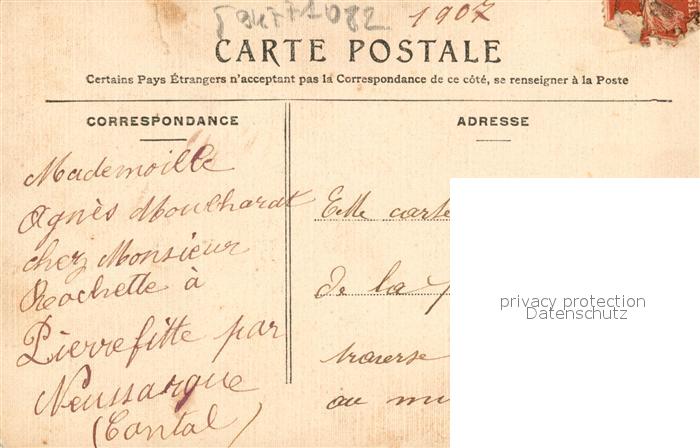 59477082 1907
CARTE POSTALE
Certains Pays Étrangers n'acceptant pas la Correspondance de ce côté, se renseigner à la Poste
CORRESPONDANCE
Mademoille
Agnès Moucharat
chez Monsieur
Rochette à
Pierrefitte par
Neussargue
(Cantal)
ADRESSE
Elle carte
de la
traverse
au mi
privacy protection
Datenschutz